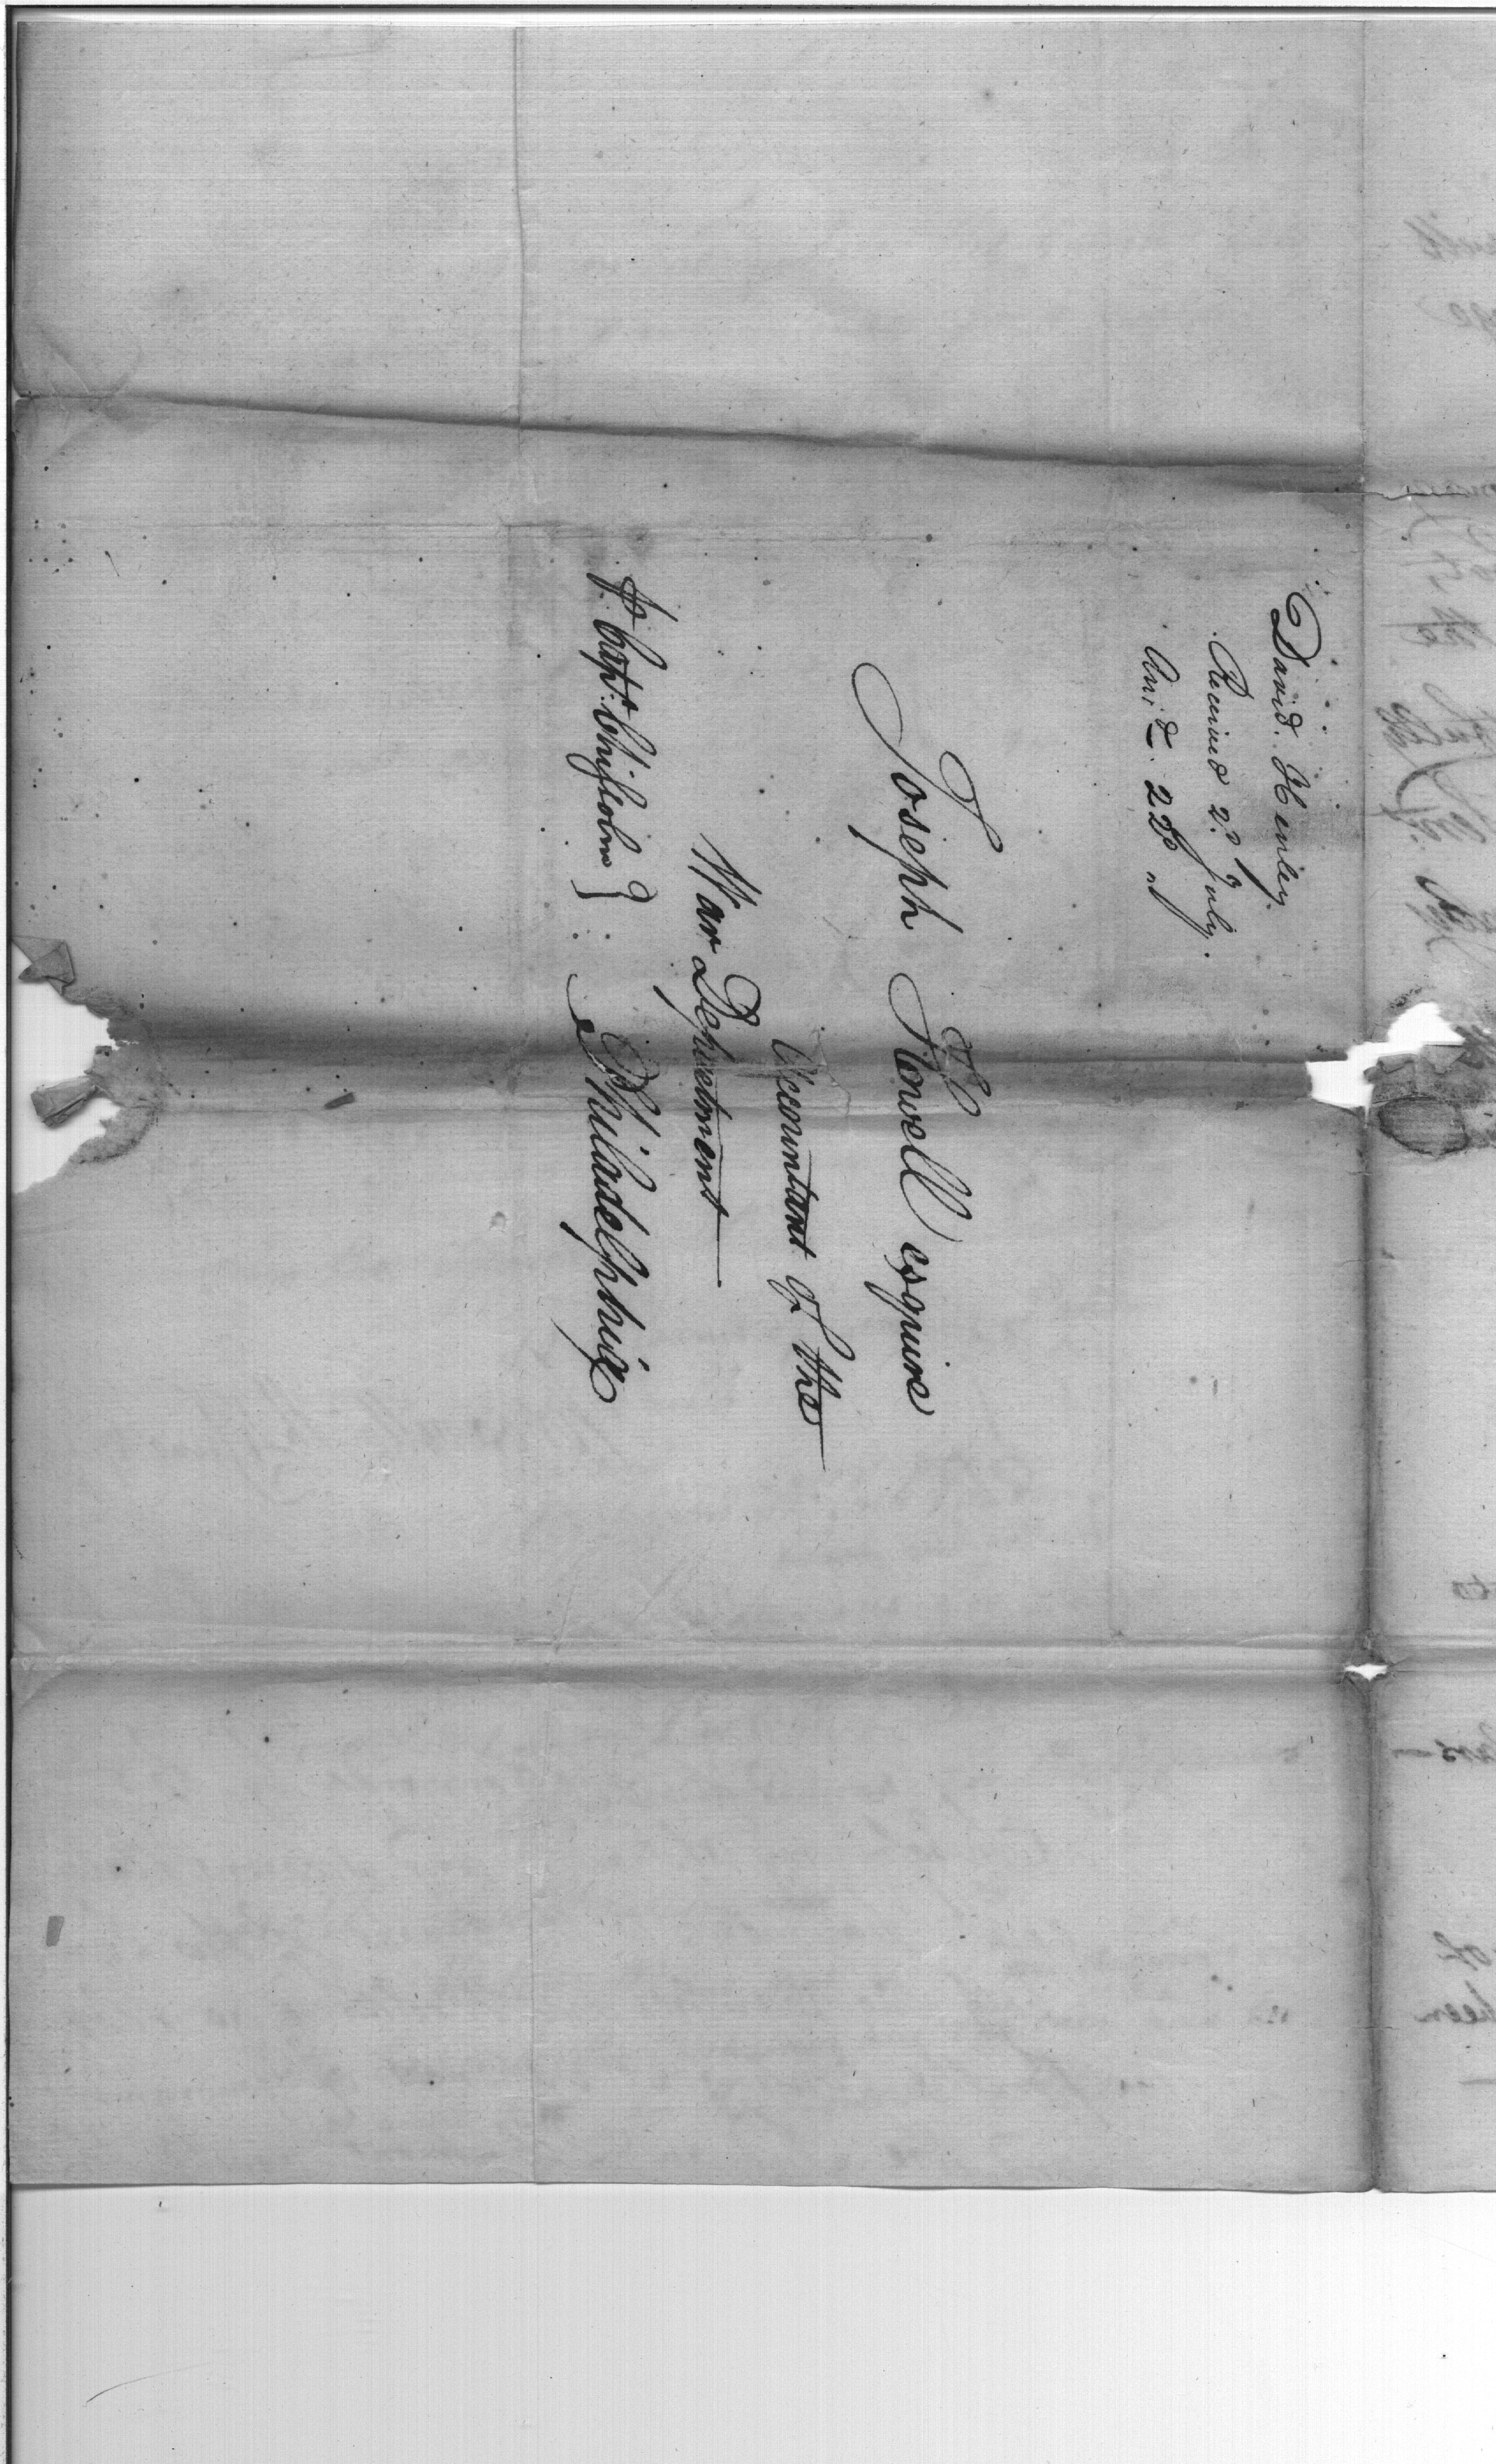 David Henley
Received 22d July.
Ans'd 22d "
Joseph Howell esquire
Accountant of the
War Department
Philadelphia
p Capt. Chisholm }